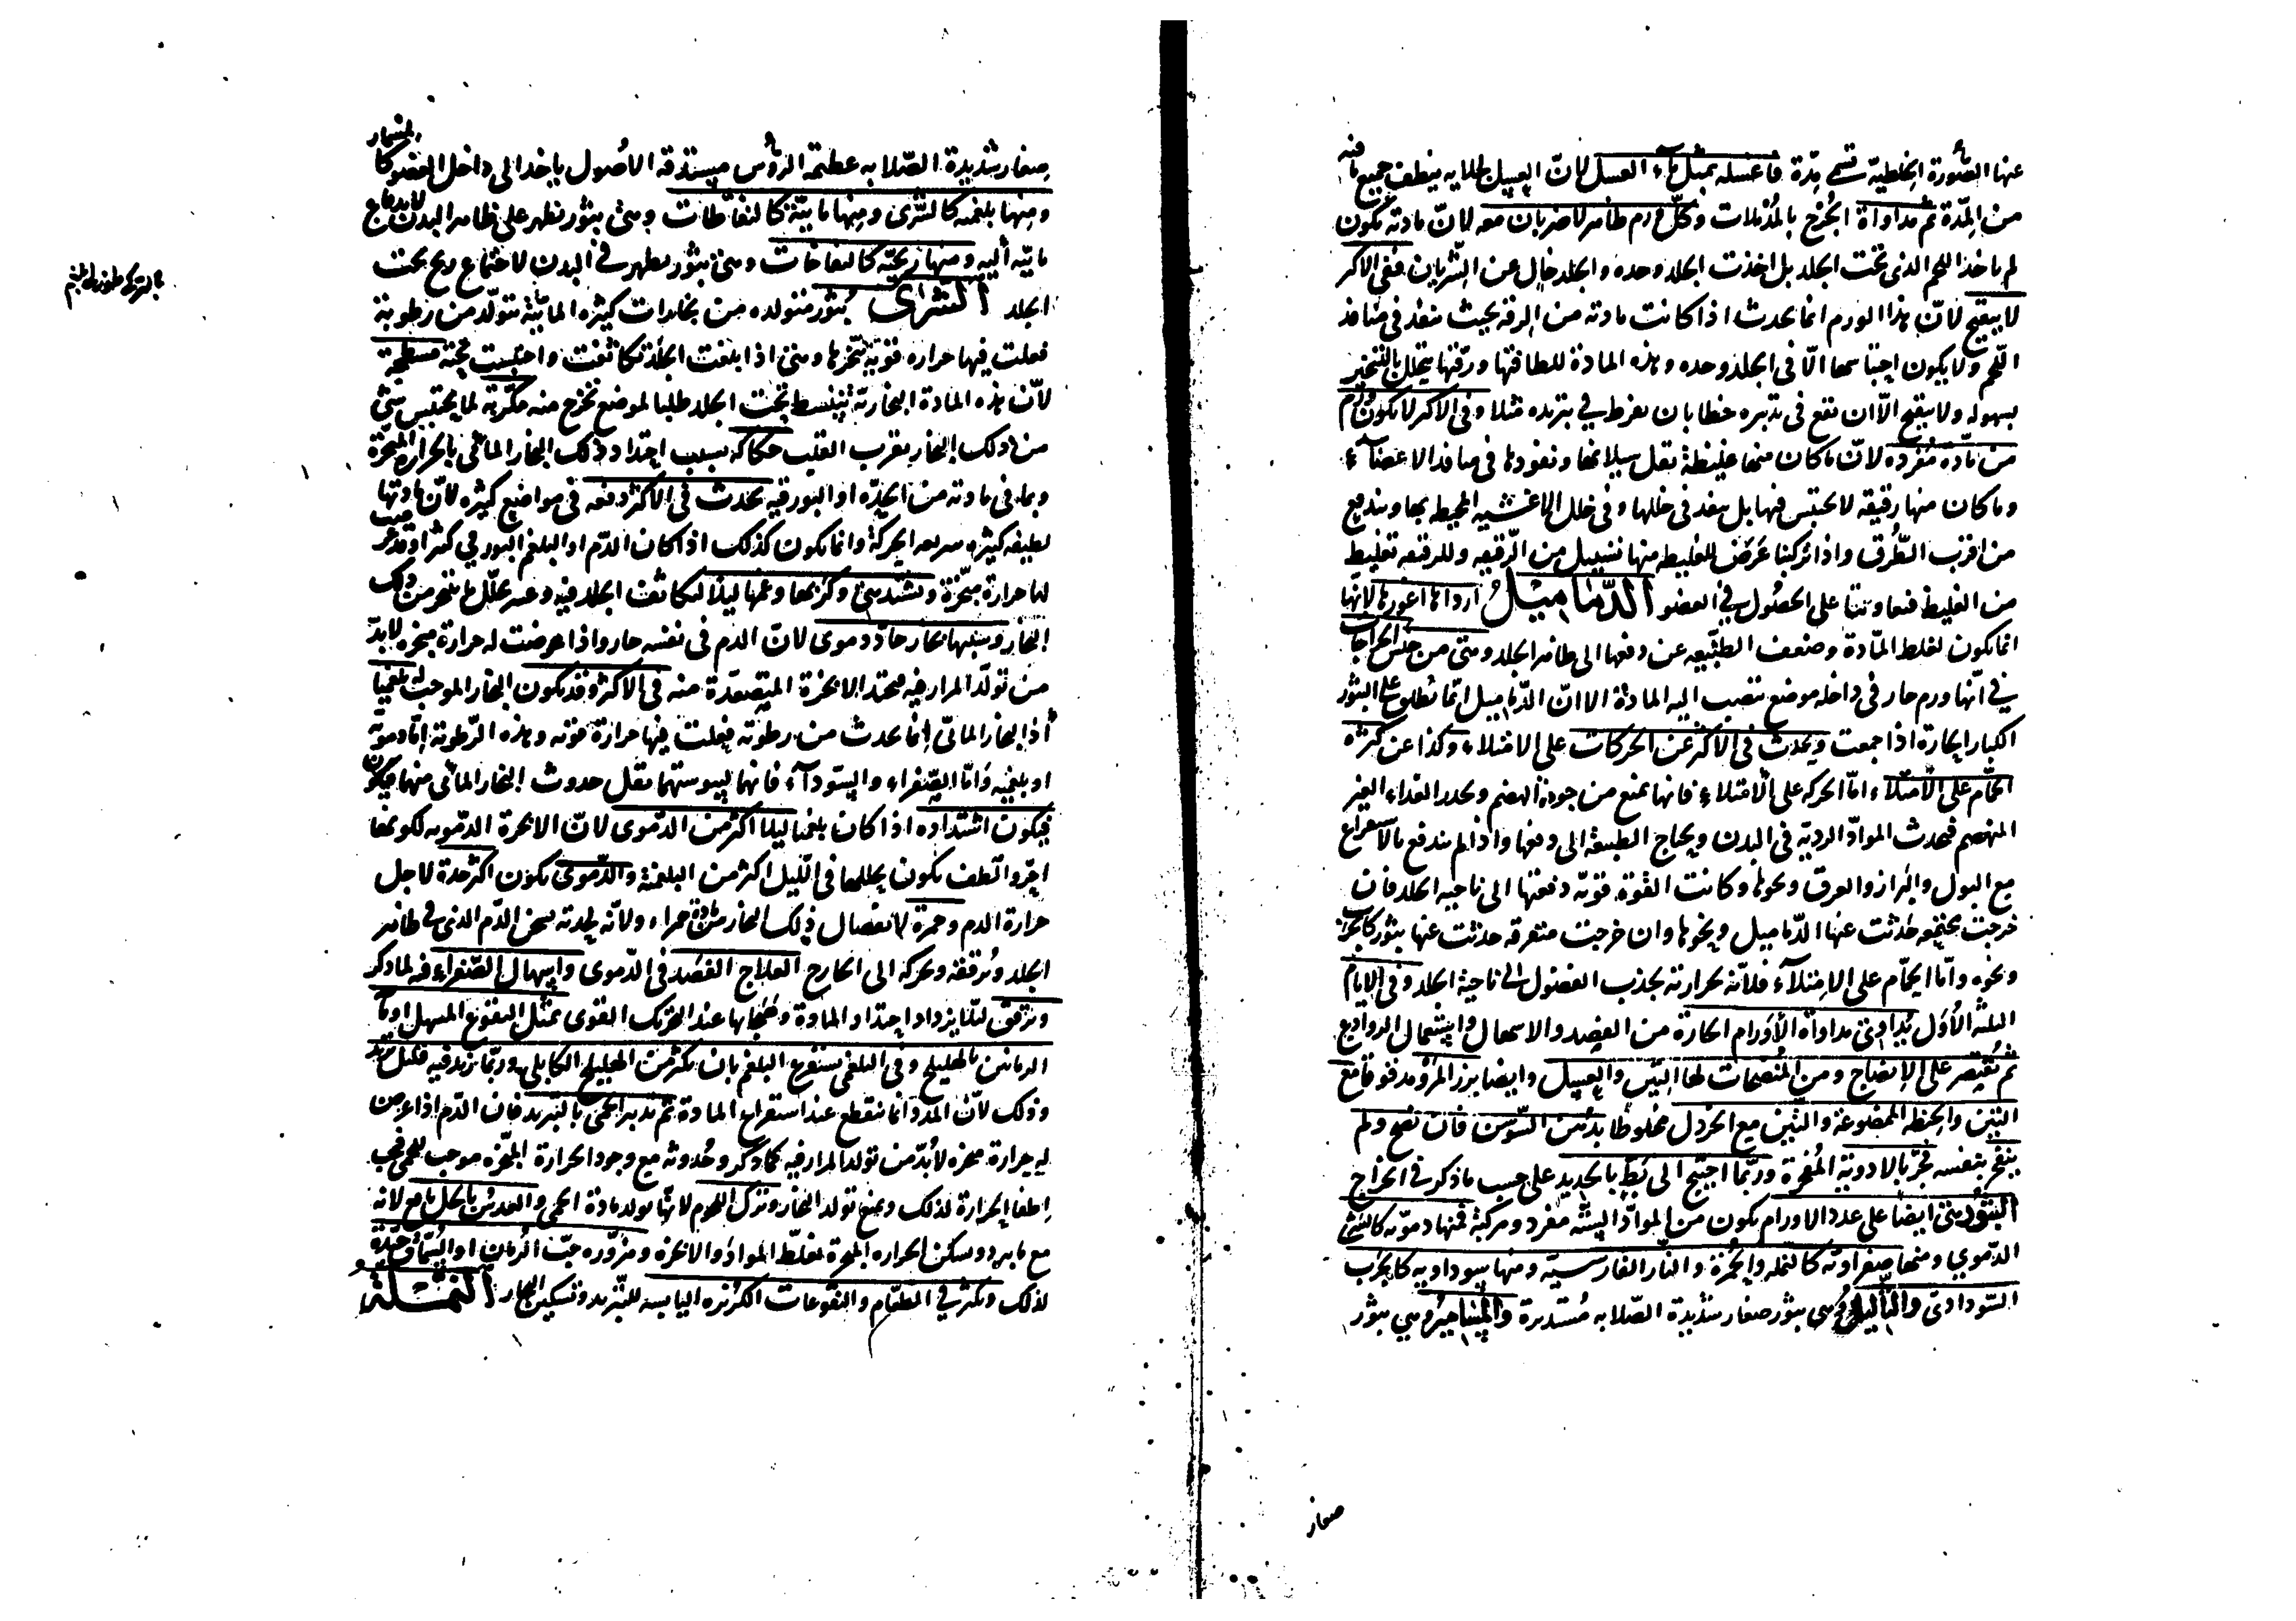 عنها الصورة الخلطية تسمى مدة فاغسله بمثل ماء العسل لان العسل لجلايه ينظف جميع ما فيه
من المدة ثم مداواة الجرح بالمدملات وكل ورم ظاهر لا ضربان معه لان مادته تكون
لم ياخذ اللحم الذى تحت الجلد بل اخذت الجلد وحده والجلد خال عن الشريان ففى الاكثر
لا يتقيح لان هذا الورم انما يحدث اذا كانت مادته من الرقة بحيث تنفذ فى منافذ
اللحم ولا يكون احتباسها الا فى الجلد وحده وهذه المادة للطافتها ورقتها يتحلل بالتبخير
بسهولة ولا يتقيح الا ان يقع فى تدبيره خطا بان يفرط فى تبريده مثلا وفى الاكثر لا يكون ورم
من مادة مفرده لان ما كان منها غليظة يقل سيلانها ونفوذها فى منافذ الاعضاء
وما كان منها رقيقة لا يحتبس فيها بل ينفذ فى خللها وفى خلل الاغشية المحيطة بها ويندفع
من اقرب الطرق واذا تركبتا عرض للغليظه منها تسييل من الرقيقه وللرقيقه تغليظ
من الغليظ فتعاونتا على الحصول فى العضو الدماميل اردأها اغورها لانها
انما يكون لغلظ المادة وضعف الطبيعه عن دفعها الى ظاهر الجلد وهى من جنس الخراجات
فى انها ورم حار فى داخله موضع تنصب اليه المادة الا ان الدماميل انما تطلق على البثور
الكبار الحارة اذا جمعت ويحدث فى الاكثر عن الحركات على الامتلاء وكذا عن كثرة
الحمام على الامتلاء اما الحركه على الامتلاء فانها تمنع من جودة الهضم ويحدر الغذاء الغير
المنهضم فيحدث المواد الردية فى البدن ويحتاج الطبيعة الى دفعها واذا لم يندفع بالاستفراغ
مع البول والبراز والعرق ونحوها وكانت القوة قوية دفعتها الى ناحية الجلد فان
خرجت مجتمعه حدثت عنها الدماميل ونحوها وان خرجت متفرقه حدثت عنها بثور كالجرب
ونحوه واما الحمام على الامتلاء فلانه بحرارته يجذب الفضول الى ناحية الجلد وفى الايام
الثلثة الاول يداوى مداواة الاورام الحارة من الفصد والاسهال واستعمال الروادع
ثم يقتصر على الانضاج ومن المنضجات لها التين والعسل وايضا بزر المرو مدقوقا مع
التين والحنطه الممضوغة والتين مع الخردل مخلوطا بدهن السوسن فان نضج ولم
ينفجر بنفسه فجر بالادوية المفجرة وربما احتيج الى بط بالحديد على حسب ما ذكر فى الخراج
البثور هى ايضا على عدد الاورام يكون من المواد الستة مفرد ومركبة فمنها دموية كالشرى
الدموي ومنها صفراوية كالنملة والجمرة والنار الفارسية ومنها سوداوية كالجرب
السوداوى والثاليل وهى بثور صغار شديدة الصلابه مستديرة والمسامير وهى بثور
صغار
صغار شديدة الصلابه عظيمة الروس مستدقة الاصول ياخذ الى داخل العضو كالمسمار
ومنها بلغميه كالشرى ومنها مائية كالنفاطات وهى بثور تظهر على ظاهر البدن لاندفاع
مائية اليه ومنها ريحية كالنفاخات وهى بثور يظهر فى البدن لاجتماع ريح تحت
الجلد الشرى بثور متولده من بخارات كثيرة المائية تتولد من رطوبة
فعلت فيها حراره قوية تبخرها وهى اذا بلغت الجلد تكاثفت واحتبست تحته مسطحة
لان هذه المادة البخارية تنبسط تحت الجلد طلبا لموضع تخرج منه مكربة لما يحتبس شئ
من ذلك البخار بقرب القلب حكاكه بسبب احتداد ذلك البخار المائى بالحراره المبخرة
وبما فى مادته من الحدة او البورقيه يحدث فى الاكثر دفعه فى مواضع كثيره لان مادتها
لطيفه كثيره سريعه الحركة وانما يكون كذلك اذا كان الدم او البلغم البورقي كثر او قد عرضت
لها حرارة مبخرة ويشتد هى وكربها وغمها ليلا لتكاثف الجلد فيه وعسر تحلل ما يتبخر من ذلك
البخار وسببها بخار حاد دموى لان الدم فى نفسه حار واذا عرضت له حرارة مبخره لا بد
من تولد المرار فيه فيحتد الابخرة المتصعدة منه فى الاكثر وقد يكون البخار الموجب له بلغميا
اذ البخار المائى انما يحدث من رطوبة فعلت فيها حرارة قويه وهذه الرطوبة اما دموية
او بلغميه واما الصفراء والسوداء فانها ليبوستهما يقل حدوث البخار المائى منهما فيكون
فيكون اشتداده اذا كان بلغميا ليلا اكثر من الدموى لان الابخرة الدمويه لكونها
احر والطف يكون تحللها فى الليل اكثر من البلغمية والدموى يكون اكثر حدة لاجل
حرارة الدم وحمرة لانفصال ذلك البخار من مادة حمراء ولانه بحدته يسخن الدم الذى فى ظاهر
الجلد ويرققه ويحركه الى الخارج العلاج الفصد فى الدموى واسهال الصفراء فيه لما ذكر
ويرفق لئلا يزداد احتداد المادة وغليانها عند التحريك القوى بمثل النقوع المسهل او ماء
الرمانين بالهليلج وفى البلغمى يستفرغ البلغم بان يكثر من الهليلج الكابلى وربما يزيد فيه قليل تربد
وذلك لان المدد انما ينقطع عند استفراغ المادة ثم تدبير الحمى بالتبريد فان الدم اذا عرض
له حرارة مبخره لا بد من تولد المرار فيه كما ذكر وحدوثه مع وجود الحرارة المبخره موجب للحمى فيجب
اطفا الحرارة لذلك ويمنع تولد البخار وترك اللحوم لانها تولد مادة الحمى والعدس بالخل نافع لانه
مع ما يبرد ويسكن الحراره المبخرة يغلظ المواد والابخره ومزوره حب الرمان او السماق جيدة
لذلك ويكثر فى الطعام والنقوعات الكزبره اليابسه للتبريد وتسكين البخار النملة